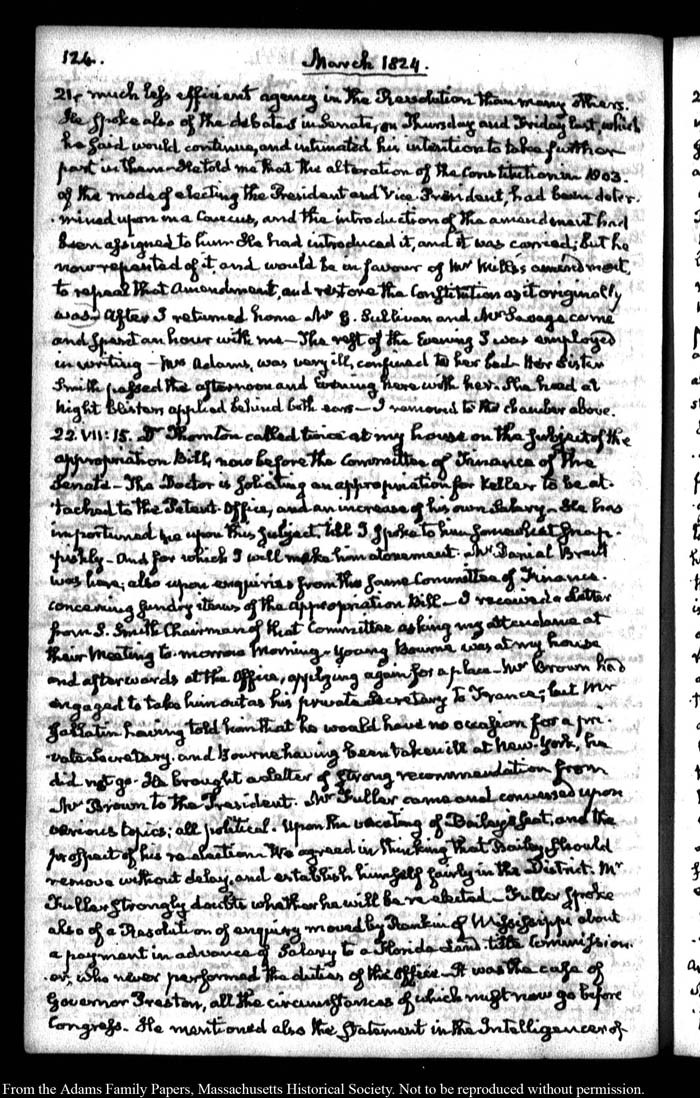 124.
March 1824.
21. much less efficient agency in the Revolution than many others.
He spoke also of the debates in Senate, on Thursday and Friday last, which
he said would continue, and intimated his intention to take further
part in them. He told me that the alteration of the Constitution in 1803.
of the mode of electing the President and Vice-President, had been deter-
mined upon in a Caucus, and the introduction of the amendment had
been assigned to him. He had introduced it, and it was carried; but he
now repented of it and would be in favour of Mr Mills's amendment,
to repeal that Amendment, and restore the Constitution as it originally
was. After I returned home Mr G. Sullivan and Mr Savage came
and spent an hour with me— The rest of the Evening I was employed
in writing— Mrs Adams, was very ill, confined to her bed. Her Sister
Smith passed the afternoon and Evening here with her. She had at
Night Blisters applied behind both ears— I removed to the chamber above.
22. VII:15. Dr Thornton called twice at my house on the subject of the
appropriation Bill, now before the Committee of Finance of the
Senate— The Doctor is soliciting an appropriation for Keller to be at-
tached to the Patent-Office, and an increase of his own Salary— He has
importuned me upon this subject, till I spoke to him somewhat snap-
pishly— And for which I will make him atonement. Mr Daniel Brent
was here; also upon enquiries from the same Committee of Finance.
concerning sundry items of the appropriation Bill— I received a Letter
from S. Smith Chairman of that Committee asking my attendance at
their Meeting to-morrow Morning. Young Bourne was at my house
and afterwards at the Office, applying again for a place— Mr Brown had
engaged to take him out as his private Secretary to France; but Mr
Gallatin having told him that he would have no occasion for a pri-
vate Secretary. and Bourne having been taken ill at New-York, he
did not go. He brought a Letter of strong recommendation from
Mr Brown to the President. Mr Fuller came and conversed upon
various topics; all political. Upon the vacating of Bailey's seat, and the
prospect of his re-election. We agreed in thinking that Bailey should
remove without delay, and establish himself fairly in the District. Mr
Fuller strongly doubts whether he will be re-elected— Fuller spoke
also of a Resolution of enquiry moved by Rankin of Mississippi about
a payment in advance of Salary to a Florida Land title Commission-
er, who never performed the duties of the Office— It was the case of
Governor Preston, all the circumstances of which must now go before
Congress. He mentioned also the Statement in the Intelligencer of
From the Adams Family Papers, Massachusetts Historical Society. Not to be reproduced without permission.